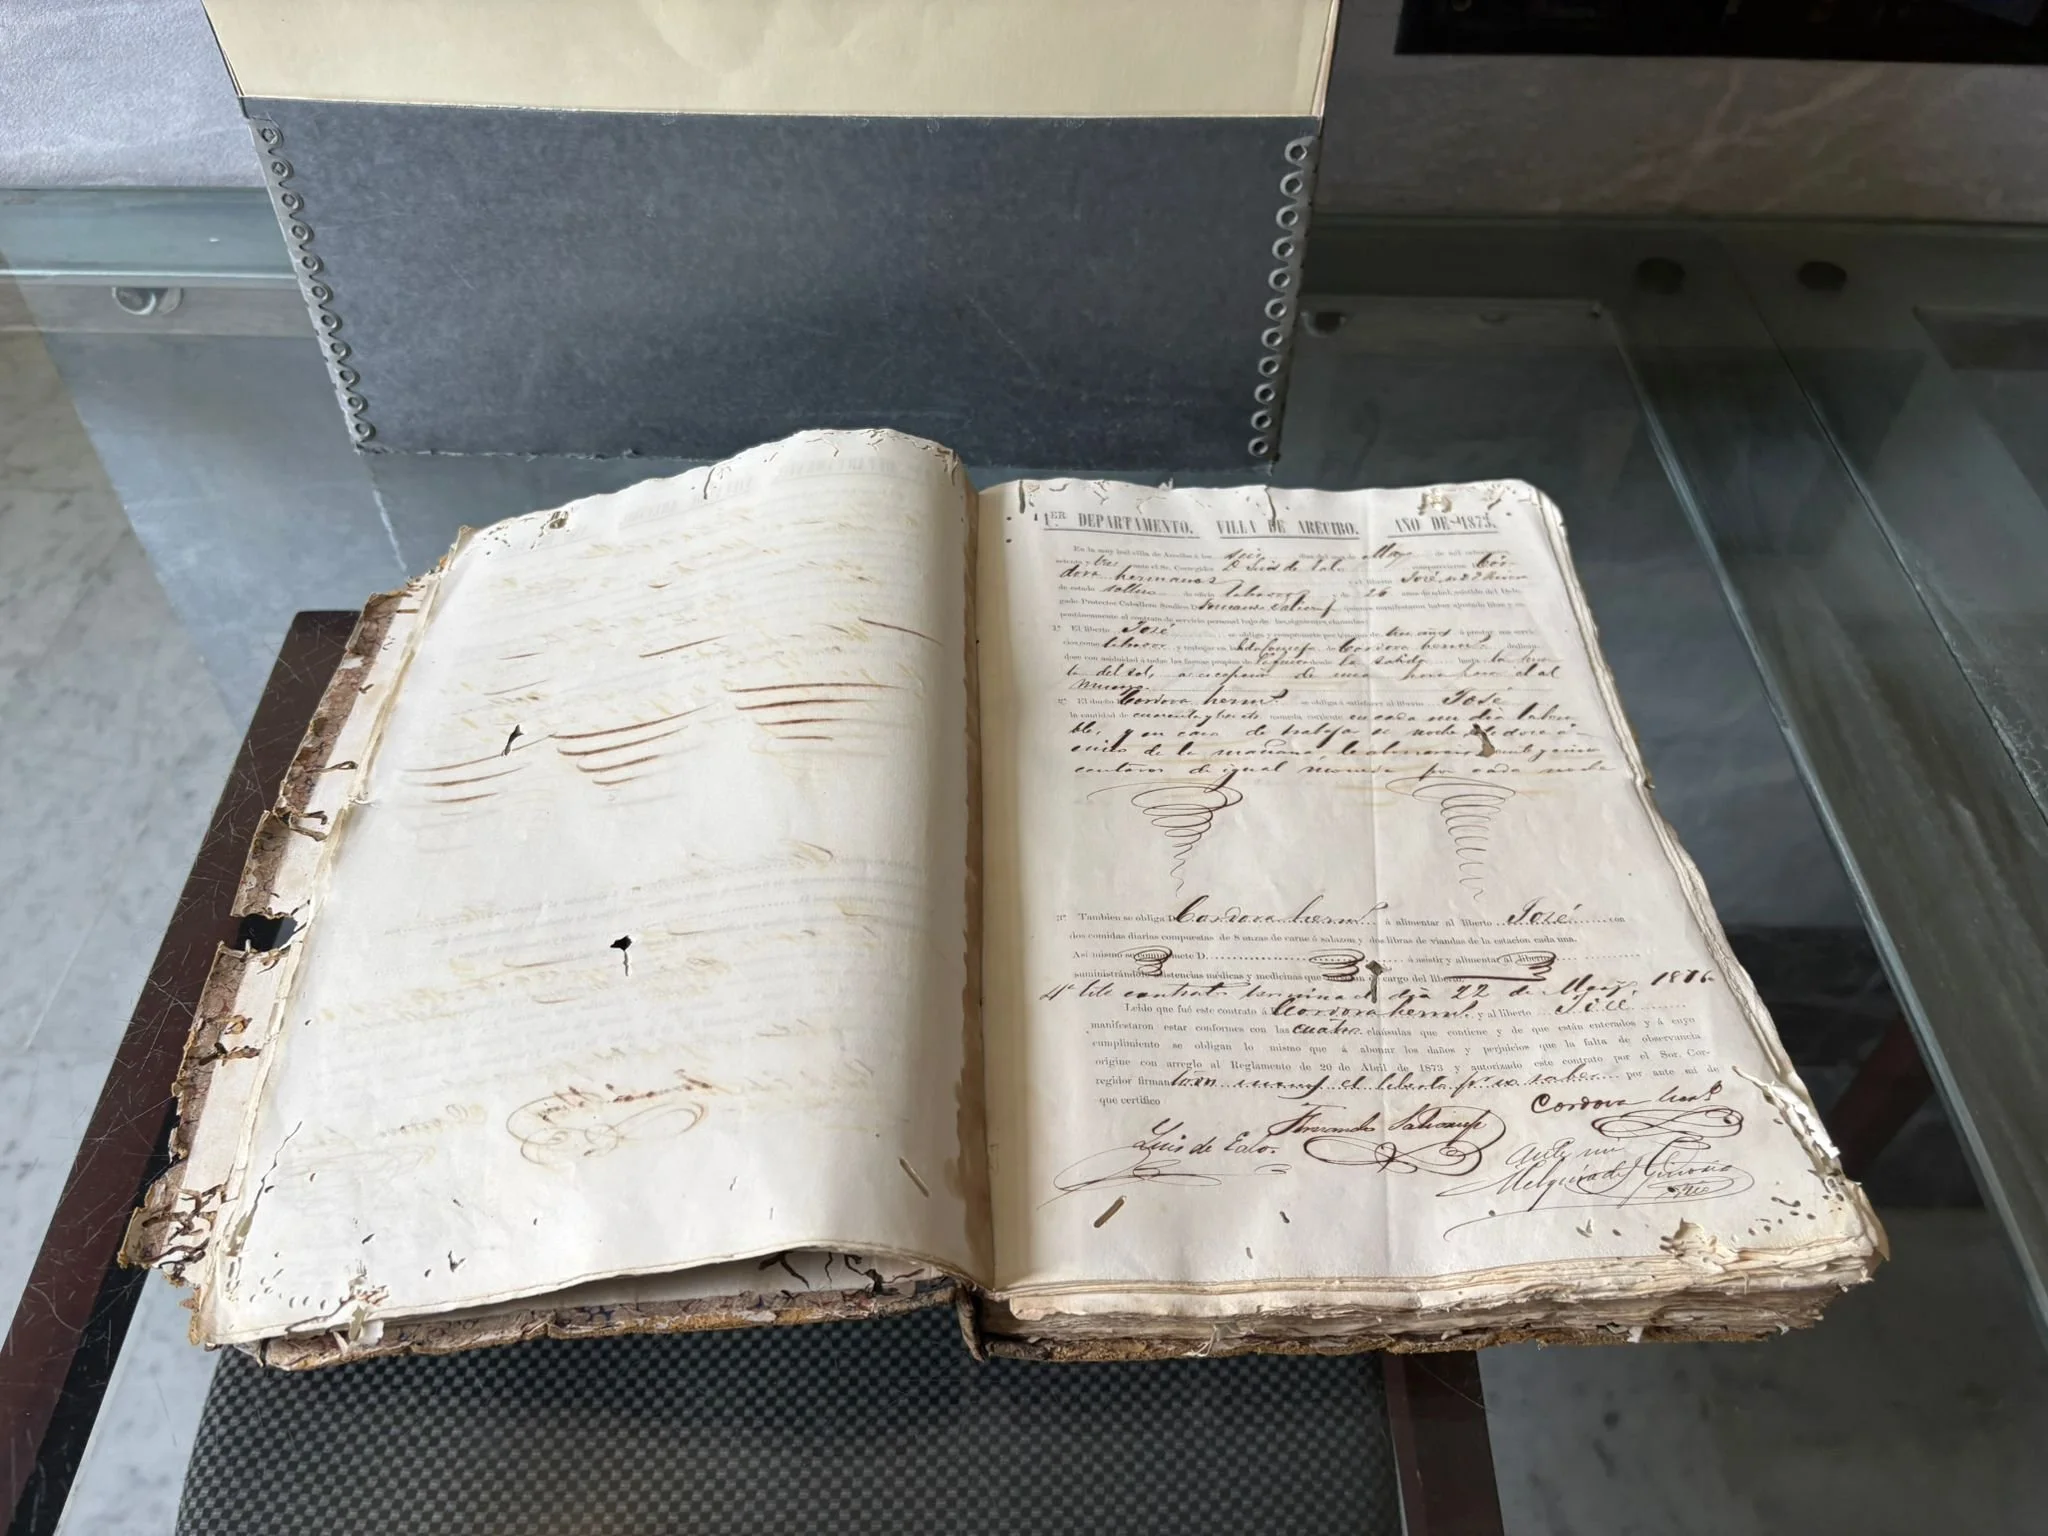 1ER DEPARTAMENTO. VILLA DE ARECIBO. AÑO DE 1873.
En la muy leal villa de Arecibo á los seis dias del mes de Mayo de mil ocho
setenta y tres ante el Sr. Corregidor D. Luis de comparecieron Cor-
dova hermanos y el liberto José
de estado soltero de oficio labrador y de 26 años de edad, asistido del Dele-
gado Protector Caballero Síndico D. Fernando quienes manifestaron haber ajustado libre y es-
pontáneamente el contrato de servicio personal bajo de las siguientes cláusulas:
1.ª El liberto José se obliga y compromete por término de tres años á prestar sus servi-
cios como labrador y trabajar en la de Cordova herms. dedicán-
dose con asiduidad á todas las faenas propias de desde la salida hasta la pues-
ta del sol, a escepcion de una hora para el al
muerzo.
2.ª El dueño Cordova herms. se obliga á satisfacer al liberto José
la cantidad de cuarenta y moneda corriente en cada un dia labora
ble, y en caso de trabajar de noche de doce á
cinco de la mañana le abonaran veinte y cinco
centavos de igual moneda por cada noche
3.ª Tambien se obliga D. Cordova herms. á alimentar al liberto José con
dos comidas diarias compuestas de 8 onzas de carne ó salazon y dos libras de viandas de la estacion cada una.
Así mismo se compromete D. á asistir y alimentar al liberto
suministrándole asistencias médicas y medicinas que serán de cargo del liberto
4.ª Este contrato termina el dia 22 de 1876
Leido que fué este contrato á Cordova herms. y al liberto José
manifestaron estar conformes con las cuatro cláusulas que contiene y de que están enterados y á cuyo
cumplimiento se obligan lo mismo que á abonar los daños y perjuicios que la falta de observancia
origine con arreglo al Reglamento de 20 de Abril de 1873 y autorizado este contrato por el Sor. Cor-
regidor firman todos menos el liberto por no saber por ante mi de
que certifico
Cordova herms
Fernando
Luis de
Ante mi